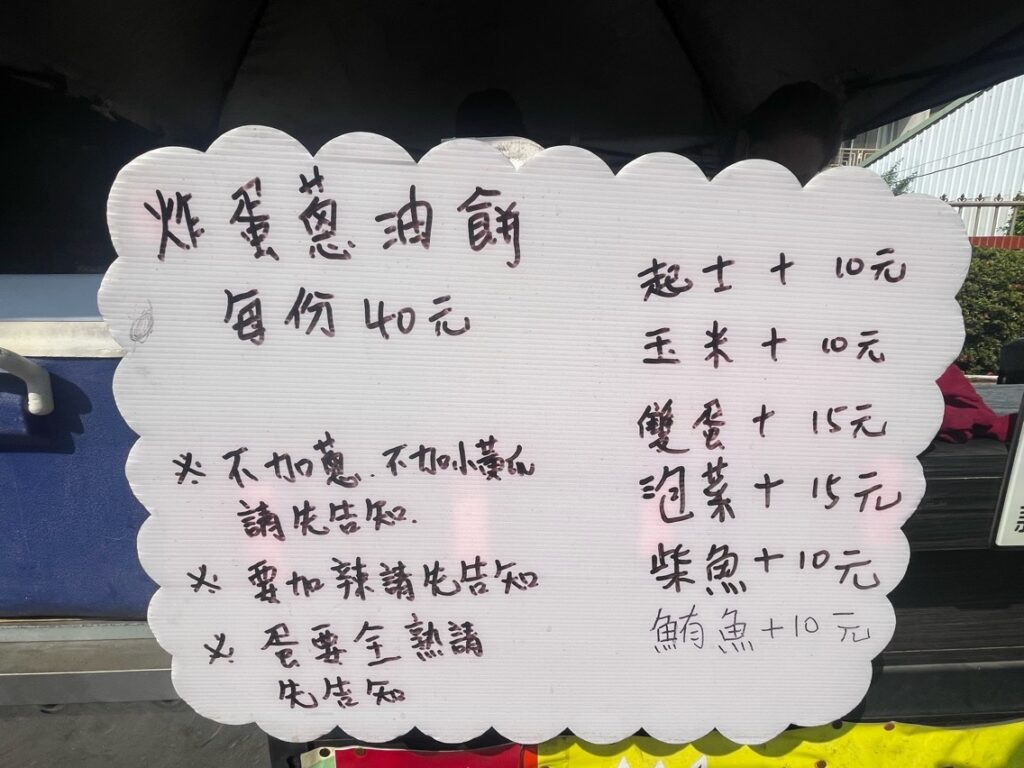 炸蛋蔥油餅
每份40元
※不加蔥.不加小黃瓜
請先告知.
※要加辣請先告知
※蛋要全熟請
先告知
起士+10元
玉米+10元
雙蛋+15元
泡菜+15元
柴魚+10元
鮪魚+10元